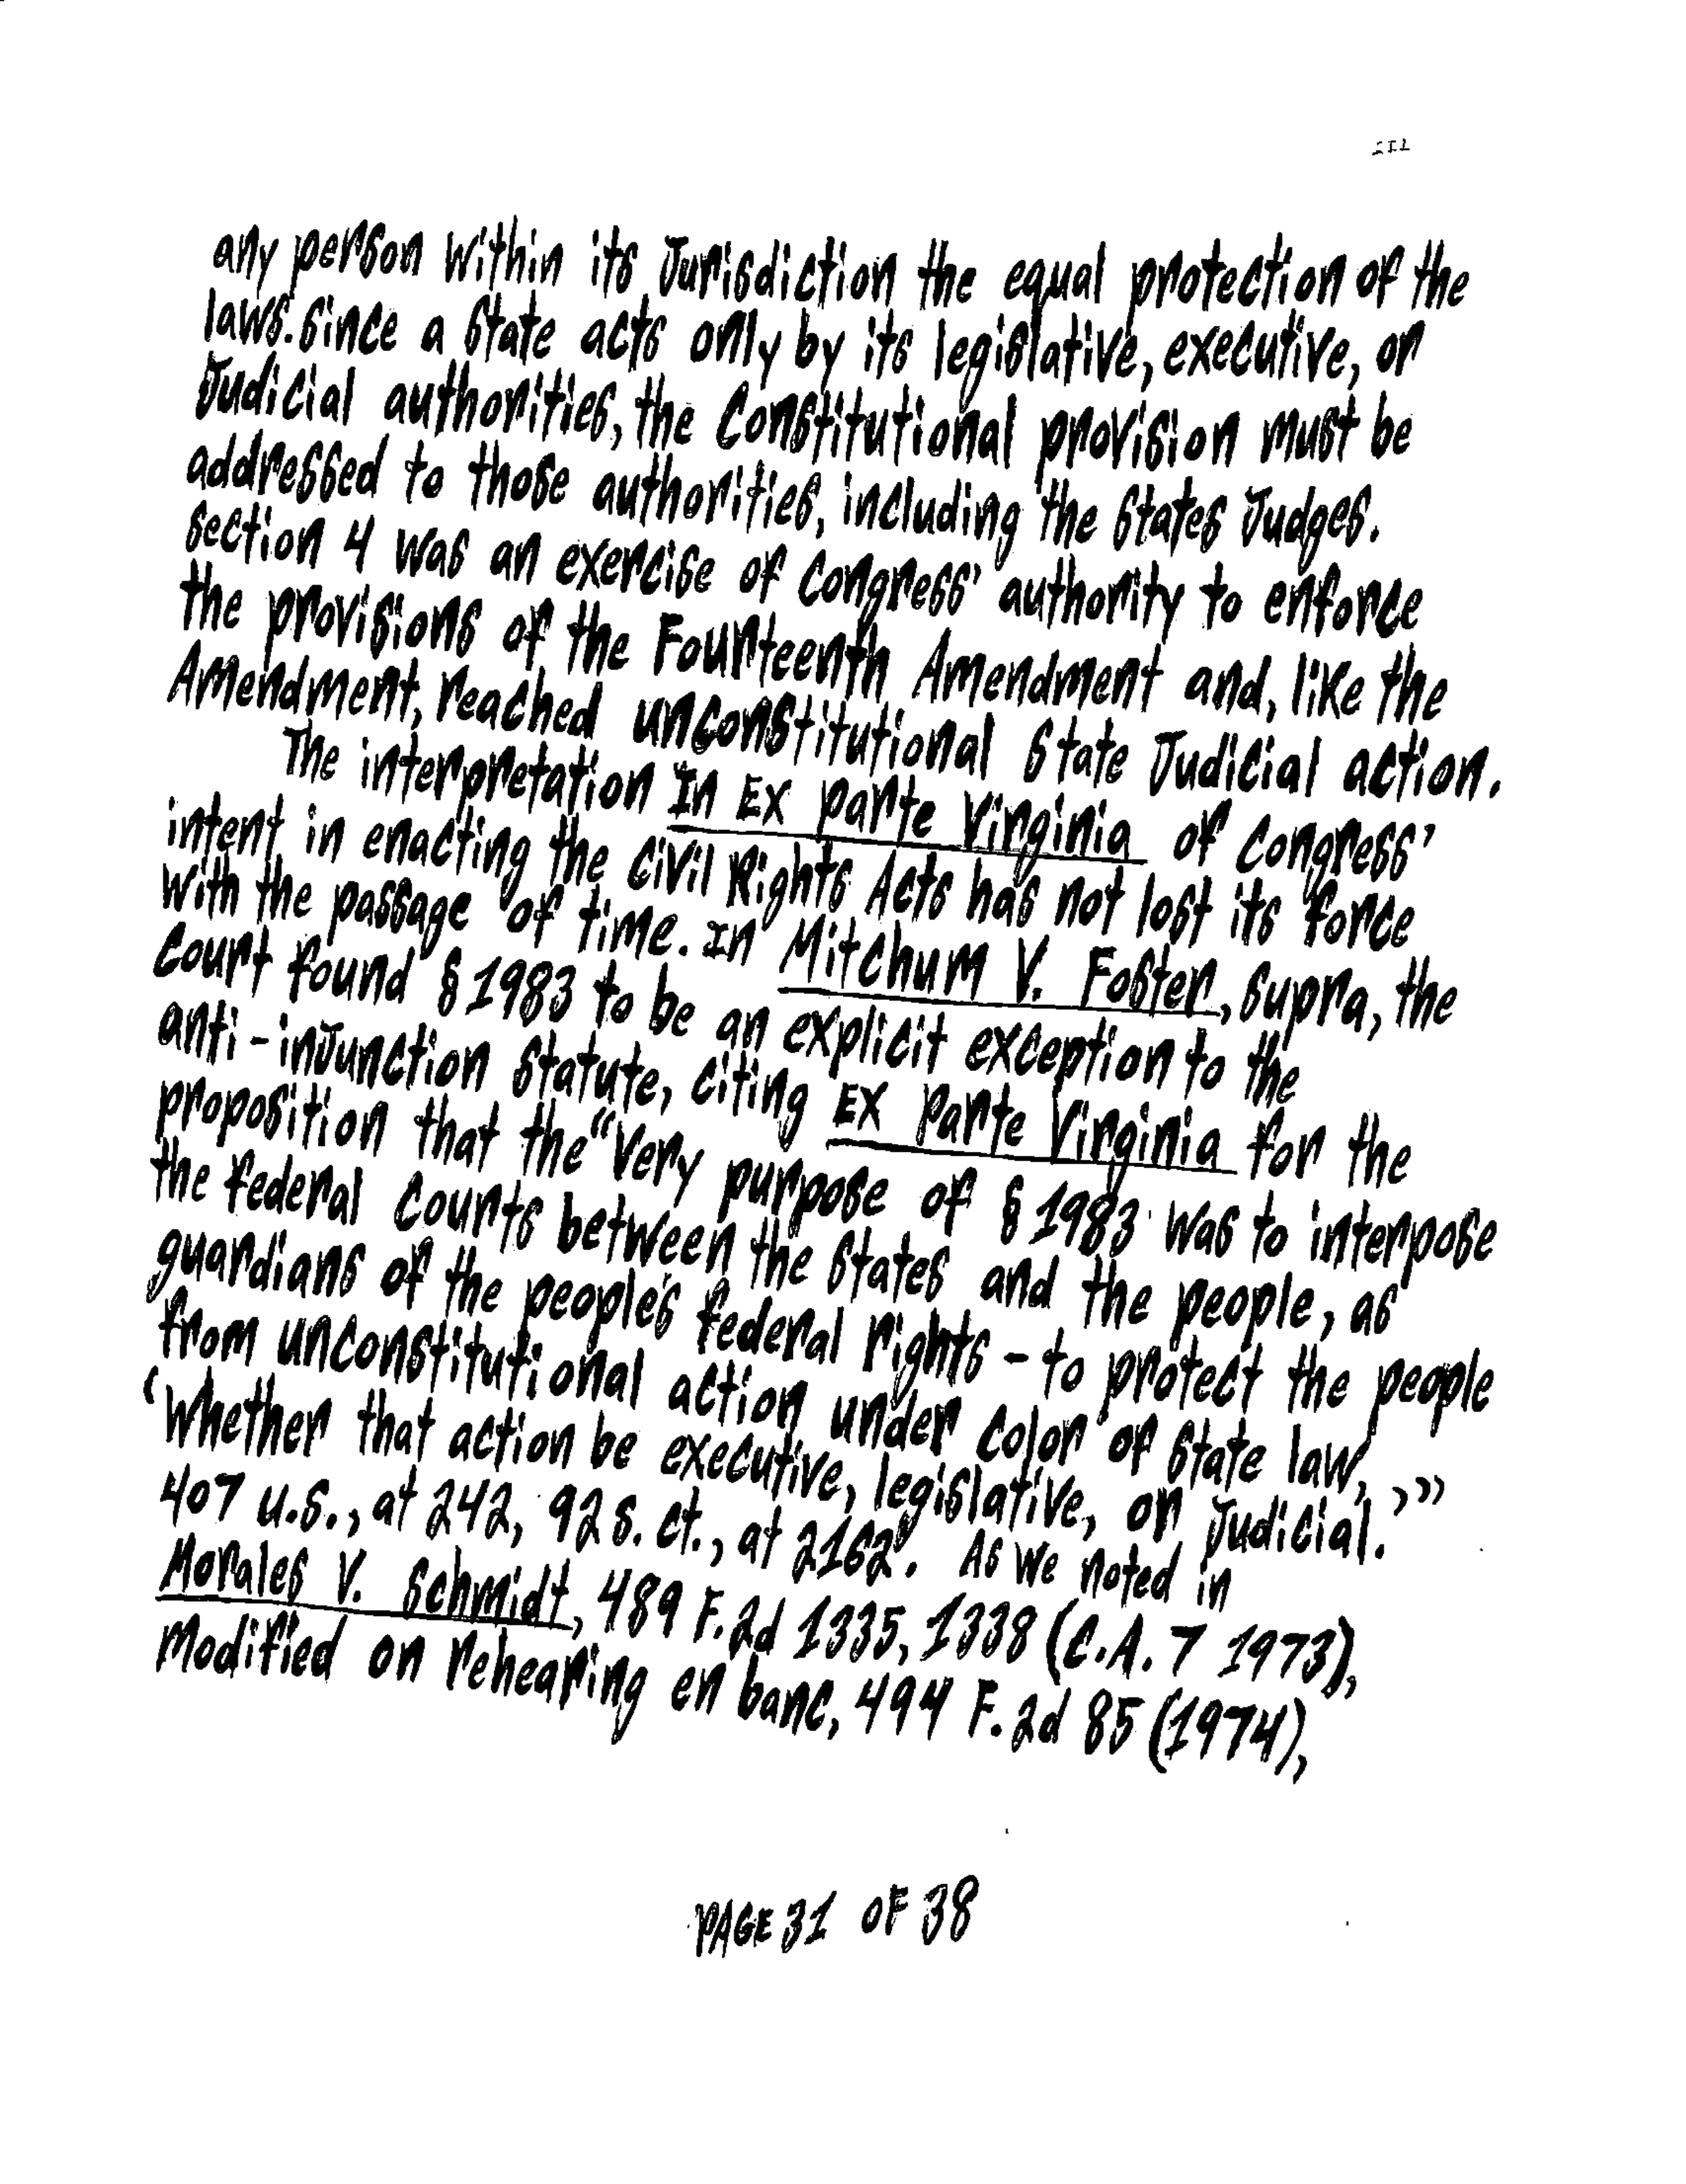 any person within its Jurisdiction the equal protection of the
laws. since a State acts only by its legislative, executive, or
Judicial authorities, the Constitutional provision must be
addressed to those authorities, including the States Judges.
section 4 was an exercise of Congress' authority to enforce
the provisions of the Fourteenth Amendment and, like the
Amendment, reached unconstitutional State Judicial action.
The interpretation In Ex parte Virginia of Congress'
intent in enacting the Civil Rights Acts has not lost its force
with the passage of time. In Mitchum V. Foster, supra, the
Court found § 1983 to be an explicit exception to the
anti-inJunction Statute, citing Ex parte Virginia for the
proposition that the "Very purpose of § 1983 was to interpose
the federal Courts between the States and the people, as
guardians of the people's federal rights - to protect the people
from unconstitutional action under color of State law,
'Whether that action be executive, legislative, or Judicial.'"
407 u.s., at 242, 92 s. ct., at 2162". As We noted in
Morales V. Schmidt, 489 F.2d 1335, 1338 (C.A. 7 1973),
Modified on rehearing en banc, 494 F.2d 85 (1974),
PAGE 31 OF 38